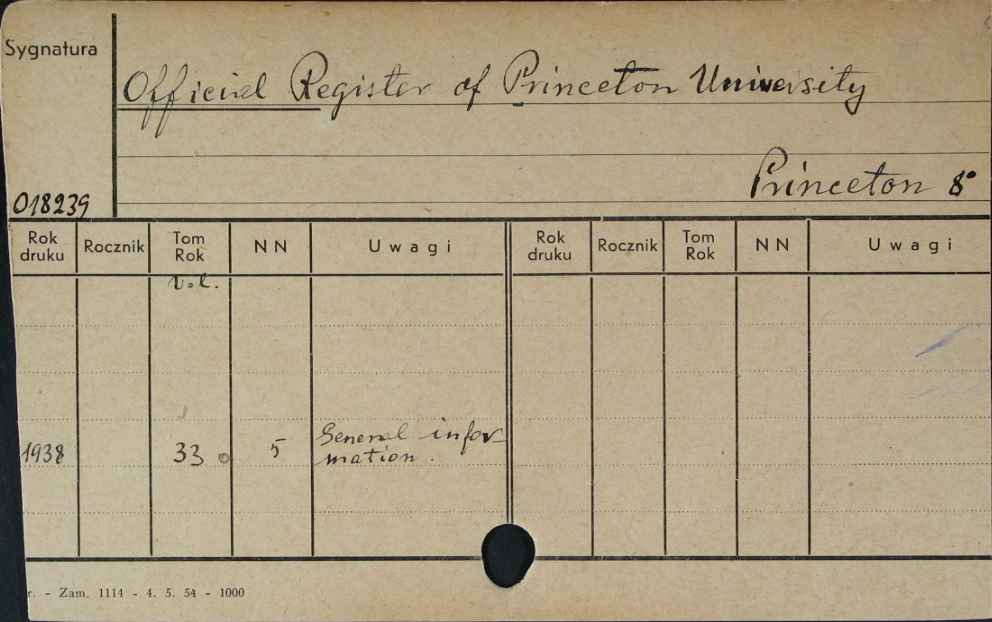 Sygnatura
Official Register of Princeton University
Princeton 8°
018239
Rok druku Rocznik Tom Rok NN Uwagi Rok druku Rocznik Tom Rok NN Uwagi
Vol.
1938 33 5 General infor
mation.
r. - Zam. 1114 - 4. 5. 54 - 1000